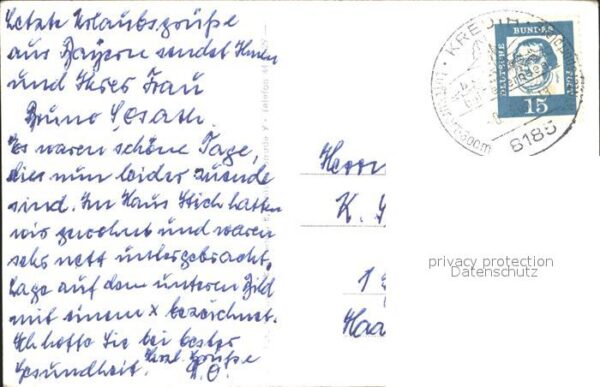 Letzte Urlaubsgrüße
aus Bayern sendet Ihnen
und Ihrer Frau
Bruno
Es waren schöne Tage,
dies nun leider zuende
sind. Im Haus Stich hatten
wir gewohnt und waren
sehr nett untergebracht.
Lage auf dem unteren Bild
mit einem x bezeichnet.
Ich hoffe Sie bei bester
Gesundheit. Herzl. Grüße
Herrn
K.
1
Haa
KREUTH
8185
DEUTSCHE BUNDESPOST
15
privacy protection
Datenschutz